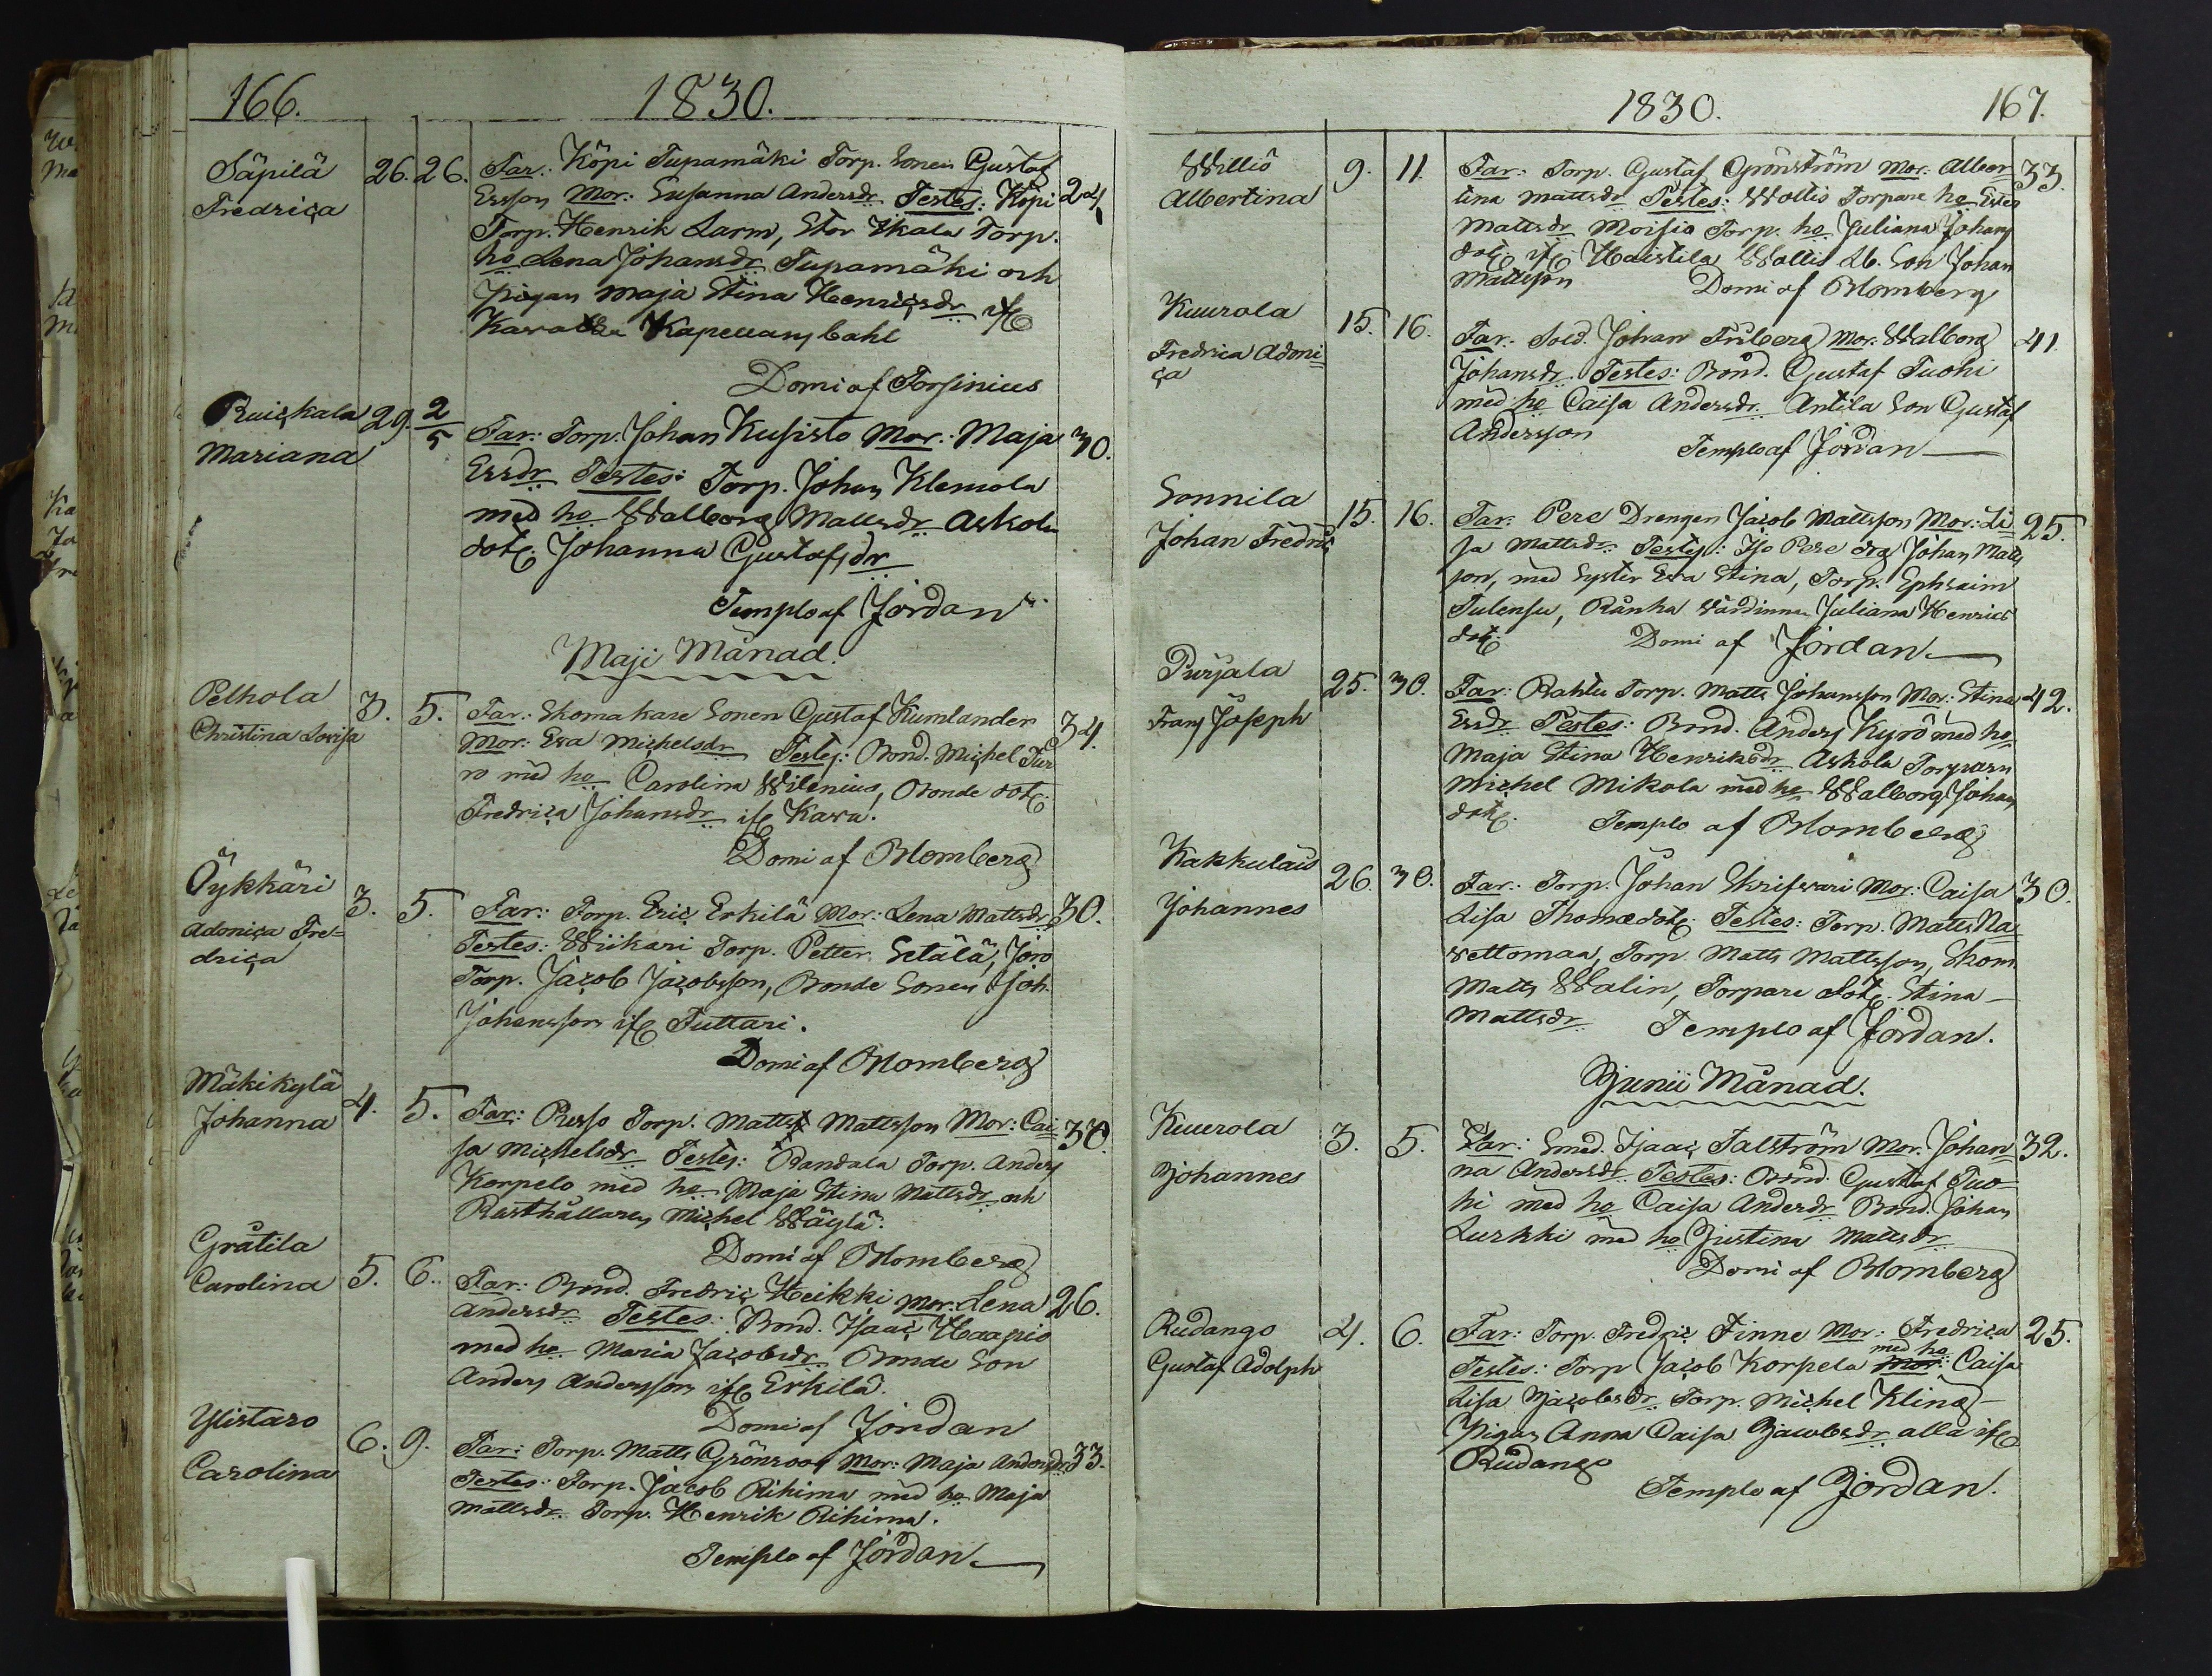 166.
1830.
Säpilä
Fredrica
26. 26.
Far: Köpi Tupamäki Torp. Sonen Gustaf
Ersson Mor: Susanna Andersdr Testes: Köpi
24
Torp. Henrik Larm, Stor Ikala Torp.
ho Lena Johansdr Tupamäki och
pigan Maja Stina Henricsdr
Kapellans Cahl
Domi af Forsinius
Ruickala
Mariana
29. 2/5
Far: Torp. Johan Kusisto Mor: Maja
30.
Ersdr Testes: Torp. Johan Klemola
med ho Walborg Mattsdr Askola
dotr. Johanna Gustafsdr
Templo af Jordan
Maji Månad.
Pelhola
Christina Lovisa
3. 5.
Far: Skomakare Sonen Gustaf Kumlander
34.
Mor: Eva Michelsdr Testes: Bond. Michel Tur
ro med ho Carolina Wilenius, Bonde dotr.
Fredrica Johansdr ifr Kava.
Domi af Blomberg
Öykkäri
Adonica Fre=
drica
3. 5.
Far: Torp. Eric Erkilä Mor: Lena Mattsdr
30.
Testes: Wiikari Torp. Petter Setälä, Joro
Torp. Jacob Jacobsson, Bonde Sonen Joh.
Johansson ifr Tuttari.
Domi af Blomberg
Mäkikylä
Johanna
4. 5.
Far: Russo Torp. Matts Mattsson Mor: Cai
30.
sa Michelsdr Testes: Bandala Torp. Anders
Korpelo med ho Maja Stina Mattsdr och
Rusthållaren Michel Wäylä.
Domi af Blomberg
Gråtila
Carolina
5. 6.
Far: Bond. Fredric Heikki Mor: Lena
26.
Andersdr Testes: Bond. Isaac Haapio
med ho Maria Jacobsdr Bonde Son
Anders Andersson ifr Erkilä.
Domi af Jordan
Ylistaro
Carolina
6. 9.
Far: Torp. Matts Grönroos Mor: Maja Andersdr
33.
Testes: Torp. Jacob Rihima med ho Maja
Mattsdr Torp. Henrik Rihima.
Templo af Jordan
1830.
167.
Willio
Albertina
9. 11.
Far: Torp. Gustaf Grönström Mor: Alber
33.
tina Mattsdr Testes: Wollis Torpare ho
Mattsdr Moisio Torp. ho Juliana Johans
dotr ifr Haistila Wallis Son Johan
Mattsson
Domi af Blomberg
Kuurola
Fredrica Adoni
ca
15. 16.
Far: Sold. Johan Friberg Mor: Walborg
41.
Johansdr Testes: Bond. Gustaf Tuohi
med ho Caisa Andersdr Antila Son Gustaf
Andersson
Templo af Jordan
Sonnila
Johan Fredric
15. 16.
Far: Pere Drengen Jacob Mattsson Mor: Li
25.
sa Mattsdr Testes: Iso Pere drg Johan Matts
son, med Syster Eva Stina, Torp. Ephraim
Tulensu, Rånka Wärdinnan Juliana Henrics
dotr. Domi af Jordan
Purjala
Frans Joseph
25. 30.
Far: Rahtu Torp. Matts Johansson Mor: Stina
42.
Ersdr Testes: Bond. Anders Kyrö med ho
Maja Stina Henriksdr Askola Torparn
Michel Mikola med ho Walborg Johans
dotr. Templo af Blomberg
Kakkulais
Johannes
26. 30.
Far: Torp. Johan Skrifvari Mor: Caisa
30.
Lisa Thomædotr. Testes: Torp. Matts Na
vettomaa, Torp. Matts Mattsson, Skom.
Matts Walin, Torpare dotr. Stina
Mattsdr Templo af Jordan.
Junii Månad.
Kuurola
Johannes
3. 5.
Far: Smed. Isaac Talström Mor: Johan
32.
na Andersdr Testes: Bond. Gustaf Tuo
hi med ho Caisa Andersdr Bond. Johan
Lurkki med ho Justina Mattsdr
Domi af Blomberg
Rudango
Gustaf Adolph
4. 6.
Far: Torp. Fredric Finne Mor: Fredrica
25.
Testes: Torp Jacob Korpela med ho Caisa
Lisa Jacobsdr Torp. Michel Kling
Pigan Anna Caisa Jacobsdr alla ifr
Rudango
Templo af Jordan.